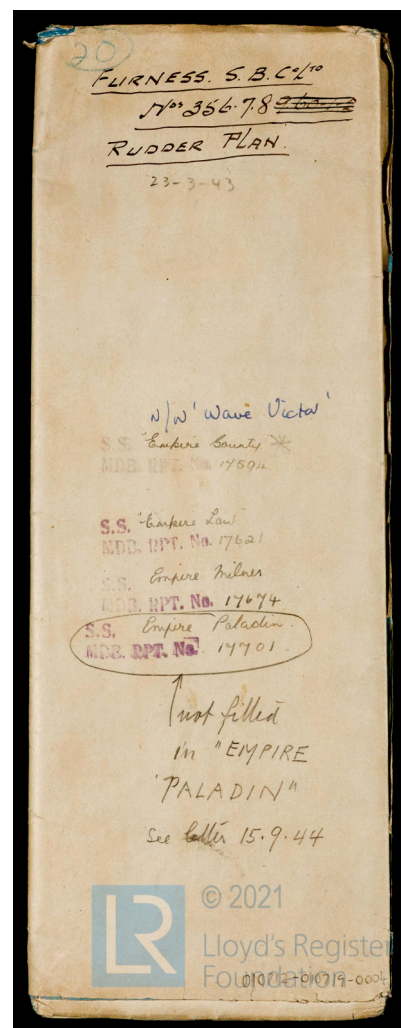 20
FURNESS. S. B. Co LTD
Nos 356.7.8
RUDDER PLAN.
23-3-43
N/N 'Wave Victor'
S.S. "Empire Bounty
MDB. RPT. No. 17594
S.S. "Empire Law"
MDB. RPT. No. 17621
S.S. Empire Milner
MDB. RPT. No. 17674
S.S. Empire Paladin.
MDB. RPT. No. 17701.
not fitted
in "EMPIRE
PALADIN"
See letter 15.9.44
LR
© 2021
Lloyd's Register
Foundation
010712-010719-0004